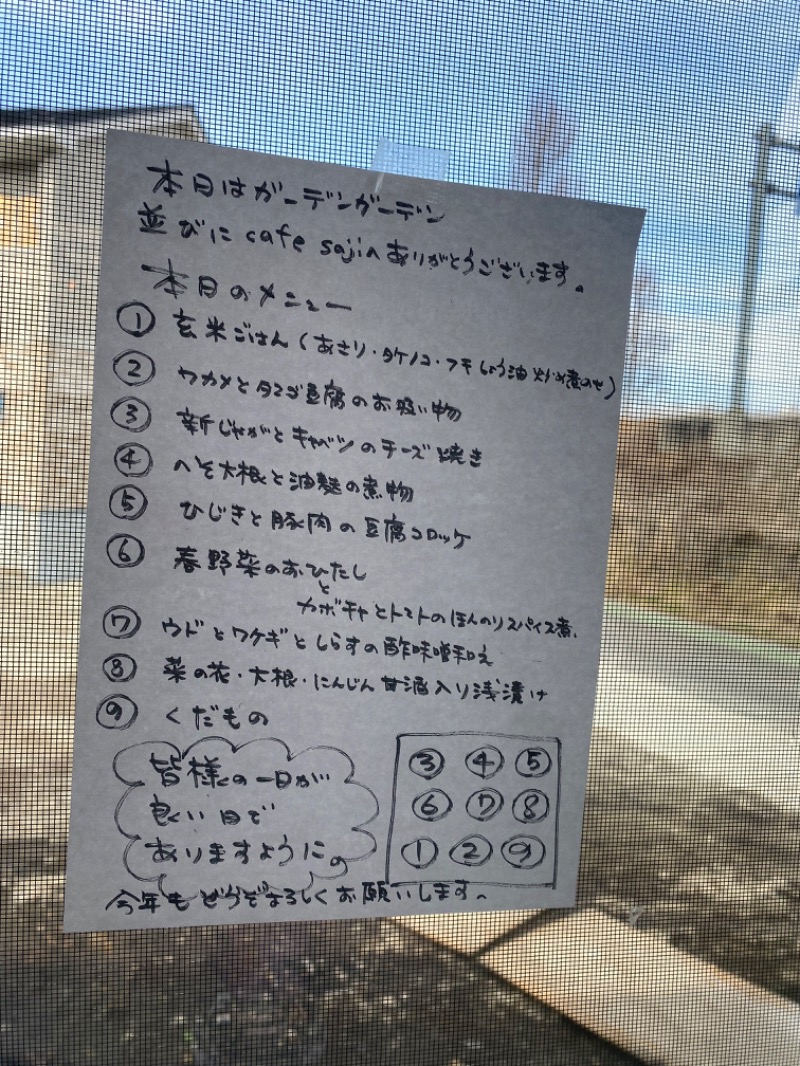 本日はガーデンガーデン
並びに cafe sajiへありがとうございます。
本日のメニュー
① 玄米ごはん(あさり・タケノコ・フキしょう油炒め煮のせ)
② ワカメとタマゴ豆腐のお吸い物
③ 新じゃがとキャベツのチーズ焼き
④ へそ大根と油麩の煮物
⑤ ひじきと豚肉の豆腐コロッケ
⑥ 春野菜のおひたし
と
カボチャとトマトのほんのりスパイス煮、
⑦ ウドとワケギとしらすの酢味噌和え
⑧ 菜の花・大根・にんじん甘酒入り浅漬け
⑨ くだもの
皆様の一日が
良い日で
ありますように。
③ ④ ⑤
⑥ ⑦ ⑧
① ② ⑨
今年もどうぞよろしくお願いします。